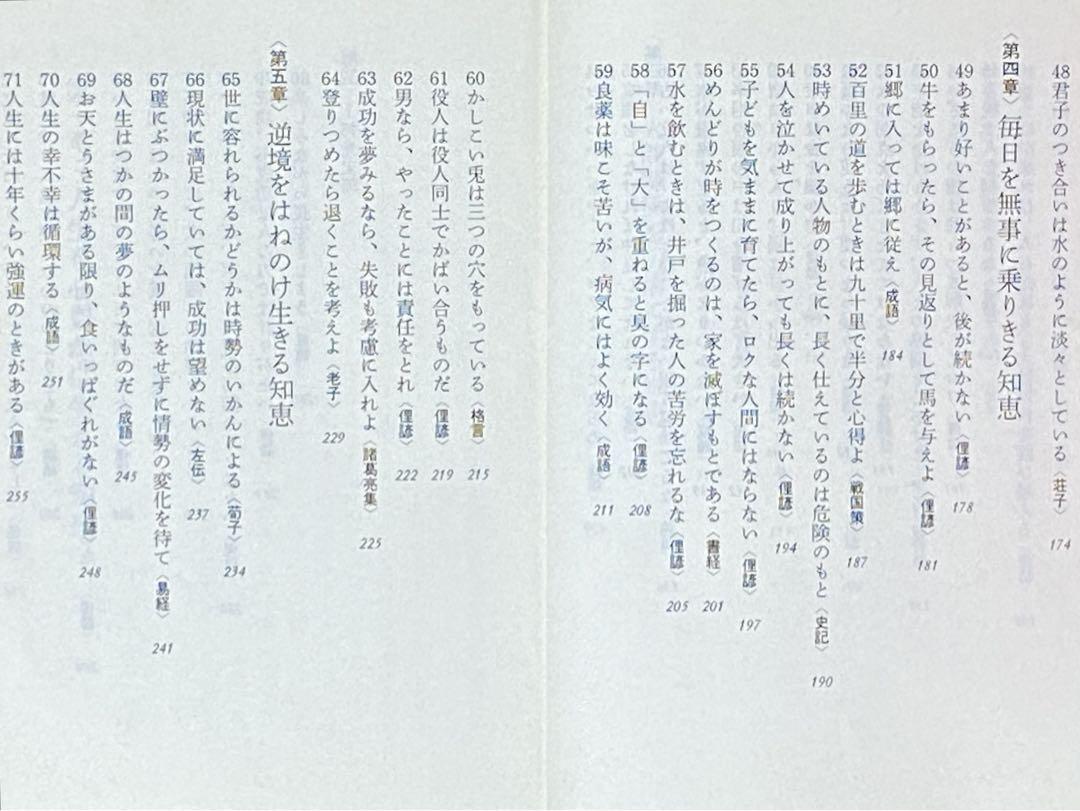 48君子のつき合いは水のように淡々としている〈荘子〉 174
〈第四章〉毎日を無事に乗りきる知恵
49あまり好いことがあると、後が続かない〈俚諺〉 178
50牛をもらったら、その見返りとして馬を与えよ〈俚諺〉 181
51郷に入っては郷に従え〈成語〉 184
52百里の道を歩むときは九十里で半分と心得よ〈戦国策〉 187
53時めいている人物のもとに、長く仕えているのは危険のもと〈史記〉 190
54人を泣かせて成り上がっても長くは続かない〈俚諺〉 194
55子どもを気ままに育てたら、ロクな人間にはならない〈俚諺〉 197
56めんどりが時をつくるのは、家を滅ぼすもとである〈書経〉 201
57水を飲むときは、井戸を掘った人の苦労を忘れるな〈俚諺〉 205
58「自」と「大」を重ねると臭の字になる〈俚諺〉 208
59良薬は味こそ苦いが、病気にはよく効く〈成語〉 211
60かしこい兎は三つの穴をもっている〈格言〉 215
61役人は役人同士でかばい合うものだ〈俚諺〉 219
62男なら、やったことには責任をとれ〈俚諺〉 222
63成功を夢みるなら、失敗も考慮に入れよ〈諸葛亮集〉 225
64登りつめたら退くことを考えよ〈老子〉 229
〈第五章〉逆境をはねのけ生きる知恵
65世に容れられるかどうかは時勢のいかんによる〈荀子〉 234
66現状に満足していては、成功は望めない〈左伝〉 237
67壁にぶつかったら、ムリ押しをせずに情勢の変化を待て〈易経〉 241
68人生はつかの間の夢のようなものだ〈成語〉 245
69お天とうさまがある限り、食いっぱぐれがない〈俚諺〉 248
70人生の幸不幸は循環する〈成語〉 251
71人生には十年くらい強運のときがある〈俚諺〉 255